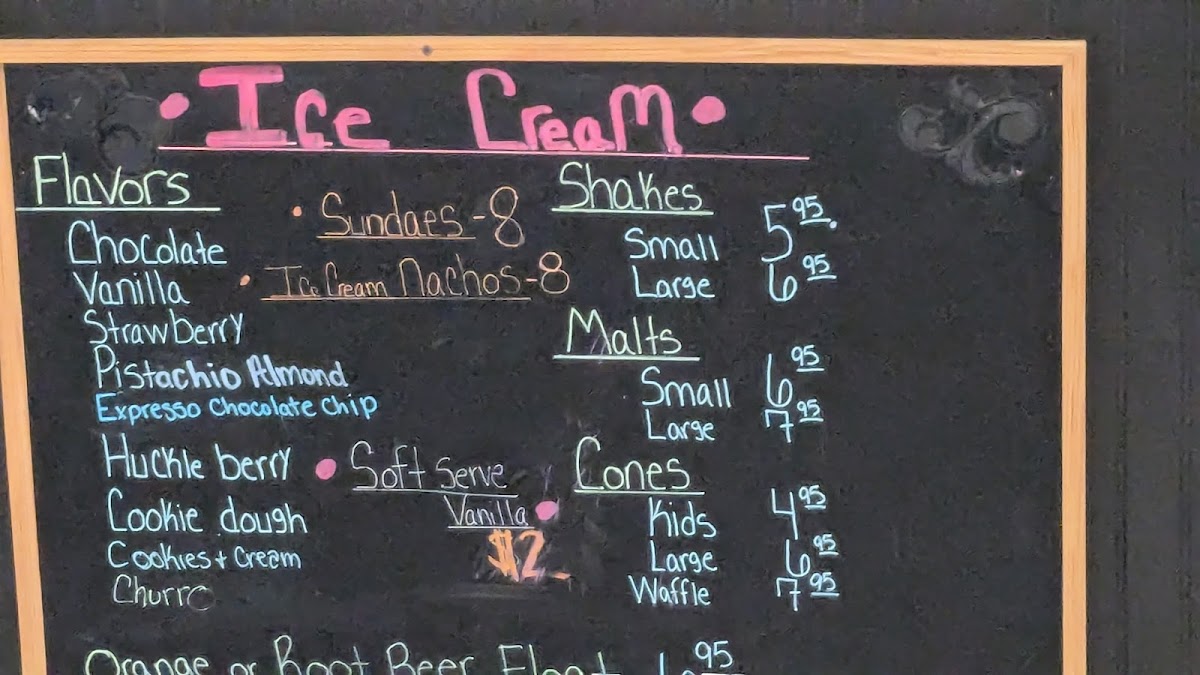 • Ice Cream •
Flavors
Chocolate
Vanilla
Strawberry
Pistachio Almond
Expresso Chocolate Chip
Huckle berry
Cookie dough
Cookies + Cream
Churro
• Sundaes - 8
• Ice Cream Nachos - 8
• Soft Serve
Vanilla •
$2
Shakes
Small 5.95
Large 6.95
Malts
Small 6.95
Large 7.95
Cones
Kids 4.95
Large 6.95
Waffle 7.95
Orange or Root Beer Float 6.95